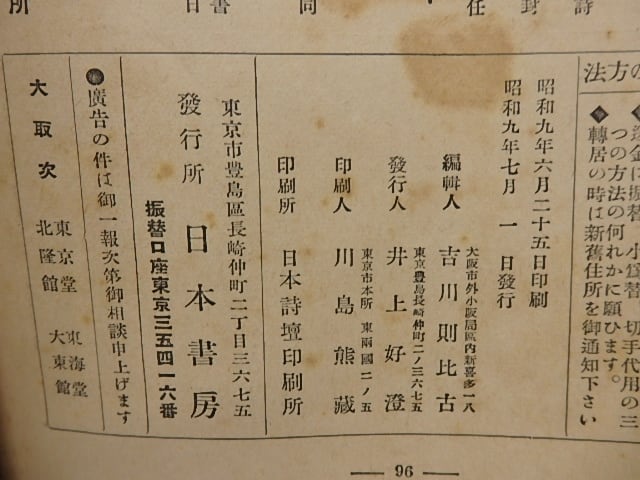 の方法
◆送金は振替、小爲替、切手代用の三
つの方法の何れかに願ひます。
◆轉居の時は新舊住所を御通知下さい
昭和九年六月二十五日印刷
昭和九年七月 一 日發行
大阪市外小阪局區内新喜多一八
編輯人 吉川則比古
東京豊島長崎仲町二ノ三六七五
發行人 井上好澄
東京市本所 東兩國二ノ五
印刷人 川島熊藏
印刷所 日本詩壇印刷所
東京市豊島區長崎仲町二丁目三六七五
發行所 日本書房
振替口座東京三五四一六番
●廣告の件は御一報次第御相談申上げます
大取次
東京堂 東海堂
北隆館 大東館
— 96 —